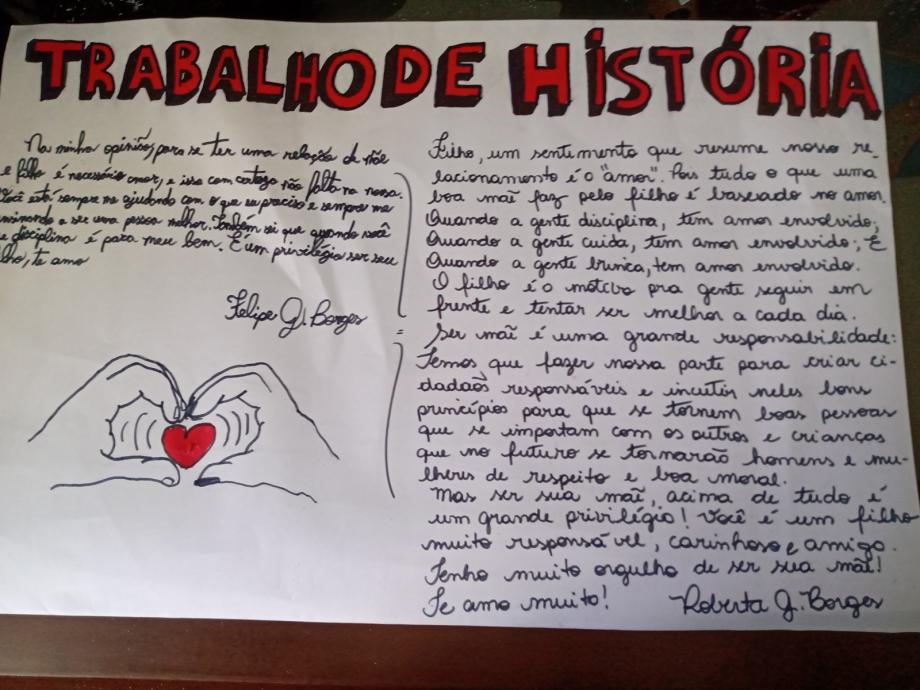 TRABALHO DE HISTÓRIA
Na minha opinião, para se ter uma relação de mãe
e filho é necessário amor, e isso com certeza não falta na nossa.
Você está sempre me ajudando com o que eu preciso e sempre me
ensinando a ser uma pessoa melhor. Também sei que quando você
me disciplina é para meu bem. É um privilégio ser seu
filho, te amo
Felipe G. Borges
Filho, um sentimento que resume nosso re-
lacionamento é o "amor". Pois tudo o que uma
boa mãe faz pelo filho é baseado no amor.
Quando a gente disciplina, tem amor envolvido;
Quando a gente cuida, tem amor envolvido; E
Quando a gente brinca, tem amor envolvido.
O filho é o motivo pra gente seguir em
frente e tentar ser melhor a cada dia.
Ser mãe é uma grande responsabilidade:
Temos que fazer nossa parte para criar ci-
dadãos responsáveis e incutir neles bons
princípios para que se tornem boas pessoas
que se importam com os outros e crianças
que no futuro se tornarão homens e mu-
lheres de respeito e boa moral.
Mas ser sua mãe, acima de tudo é
um grande privilégio! Você é um filho
muito responsável, carinhoso e amigo.
Tenho muito orgulho de ser sua mãe!
Te amo muito! Roberta G. Borges